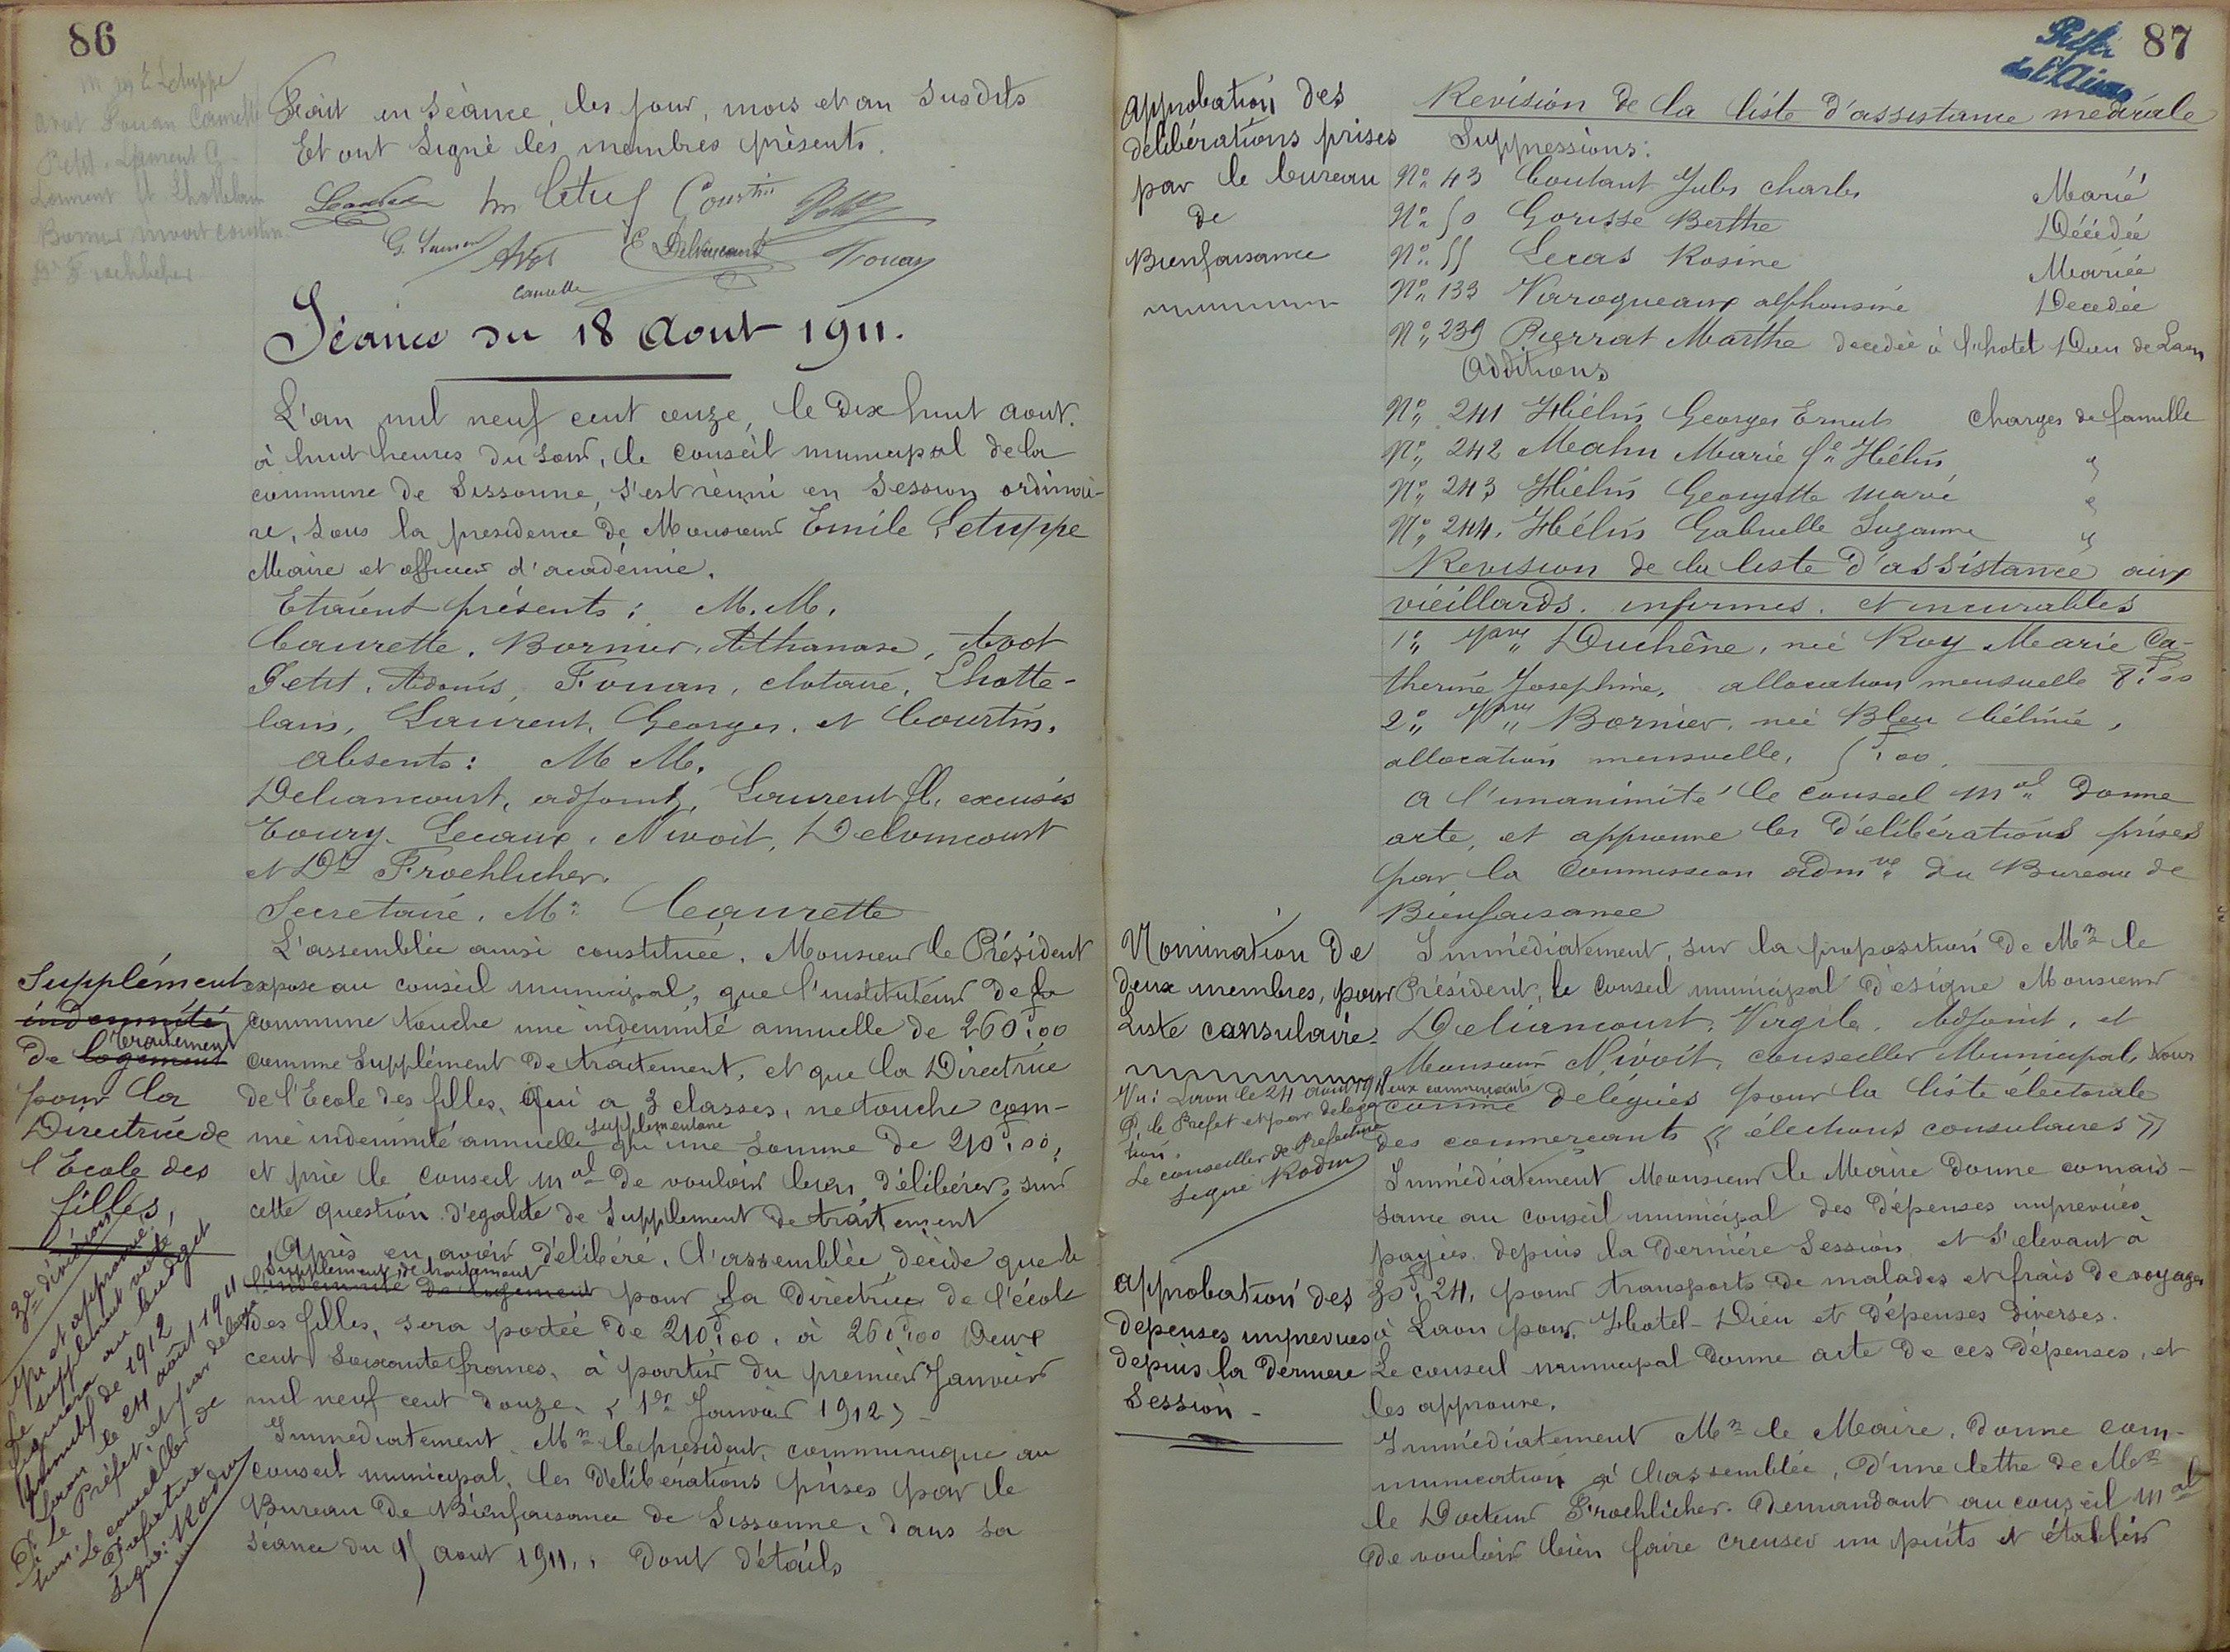 86
Fait en séance, les jour, mois et an susdits
Et ont signé les membres présents.
Courtin
G. Laurent
Avot
E Delvincourt
Fouan
Caurette
Séance du 18 Aout 1911.
L'an mil neuf cent onze, le dix huit aout.
à huit heures du soir, le conseil municipal de la
commune de Sissonne, s'est réuni en session ordinai-
re, sous la presidence de Monsieur Emile Letuppe
Maire et officier d'académie.
Etaient présents : M. M.
Caurette, Bornier, Athanase, Avot
Petit, Adonis, Fouan, clotaire, Lhotte-
lain, Laurent, Georges, et Courtin.
absents : M M.
Deliancourt, adjoint, Laurent fl. excusés
Toury, Lecaux, Nivoit, Delvincourt
et Dr Froehlicher.
Secretaire, Mr Caurette
L'assemblée ainsi constituée, Monsieur le Président
expose au conseil municipal, que l'instituteur de la
commune touche une indemnité annuelle de 260f,00
comme supplément de traitement, et que la Directrice
de l'Ecole des filles, qui a 3 classes, ne touche com-
me indemnité annuelle supplémentaire qu'une somme de 210f,00,
et prie le conseil mal de vouloir bien délibérer, sur
cette question d'egalité de supplement de traitement
Après en avoir délibéré, l'assemblée décide que le
supplement de traitement
l'indemnité de logement pour la Directrice de l'école
des filles, sera portée de 210f,00, à 260f,00 Deux
cent soixante francs, à partir du premier Janvier
mil neuf cent douze. < 1er Janvier 1912 > -
Immédiatement Mr le president, communique au
conseil municipal, les délibérations prises par le
Bureau de Bienfaisance de Sissonne, dans sa
séance du 15 aout 1911, dont détails
Supplément
indemnité
de logement traitement
pour la
Directrice de
l'Ecole des
filles,
3e division
Vu et approuvé
Le supplément voté
figurera au budget
primitif de 1912
Laon le 24 août 1911
P. Le Préfet, et par déléga-
tion,
Le conseiller de
Préfecture
signé: Rodin
87
Préfre
de l'Aisne
approbation des
délibérations prises
par le bureau
de
Bienfaisance
Revision de la liste d'assistance médicale
Suppressions :
No 43 Coutant Jules charles Marié
No 50 Gorisse Berthe Décédée
No 55 Lecas Rosine Mariée
No 133 Varoqueaux alphonsine Decedée
No 239 Pierrat Marthe decedée à l'hotel Dieu de Laon
Additions
No 241 Hélin Georges Ernest charges de famille
No 242 Mahu Marie fe Hélin "
No 243 Hélin Georgette Marie "
No 244. Hélin Gabrielle Suzanne "
Revision de la liste d'assistance aux
vieillards, infirmes, et incurables
1o Vve Duchêne, née Roy Marie Ca-
therine Josephine, allocation mensuelle 8f,00
2o Vve Bornier, née Bleu Céline,
allocation mensuelle, 5f,00.
A l'unanimité le conseil mal donne
acte, et approuve les délibérations prises
par la Commission admve du Bureau de
Bienfaisance
Nomination de
deux membres, pour
Liste consulaire.
Vu : Laon le 24 aout 1911
P. le Prefet et par déléga
tion,
Le conseiller de Prefecture
signé Rodin
Immédiatement, sur la proposition de Mr le
Président, le conseil municipal désigne Monsieur
Deliancourt, Virgile, Adjoint, et
Monsieur Nivoit, conseiller Municipal, tous
deux commerçants
comme délégués pour la liste électorale
des commercants « élections consulaires »
Immédiatement Monsieur le Maire donne connais-
sance au conseil municipal des dépenses imprevues,
payées depuis la dernière session et s'elevant à
35f,24, pour transports de malades et frais de voyages
à Laon pour Hotel-Dieu et dépenses diverses.
Le conseil municipal donne acte de ces dépenses, et
les approuve.
approbation des
depenses imprevues
depuis la derniere
session -
Immédiatement Mr le Maire, donne com-
munication à l'assemblée, d'une lettre de Mr
le Docteur Froehlicher. Demandant au conseil mal
de vouloir bien faire creuser un puits et établir